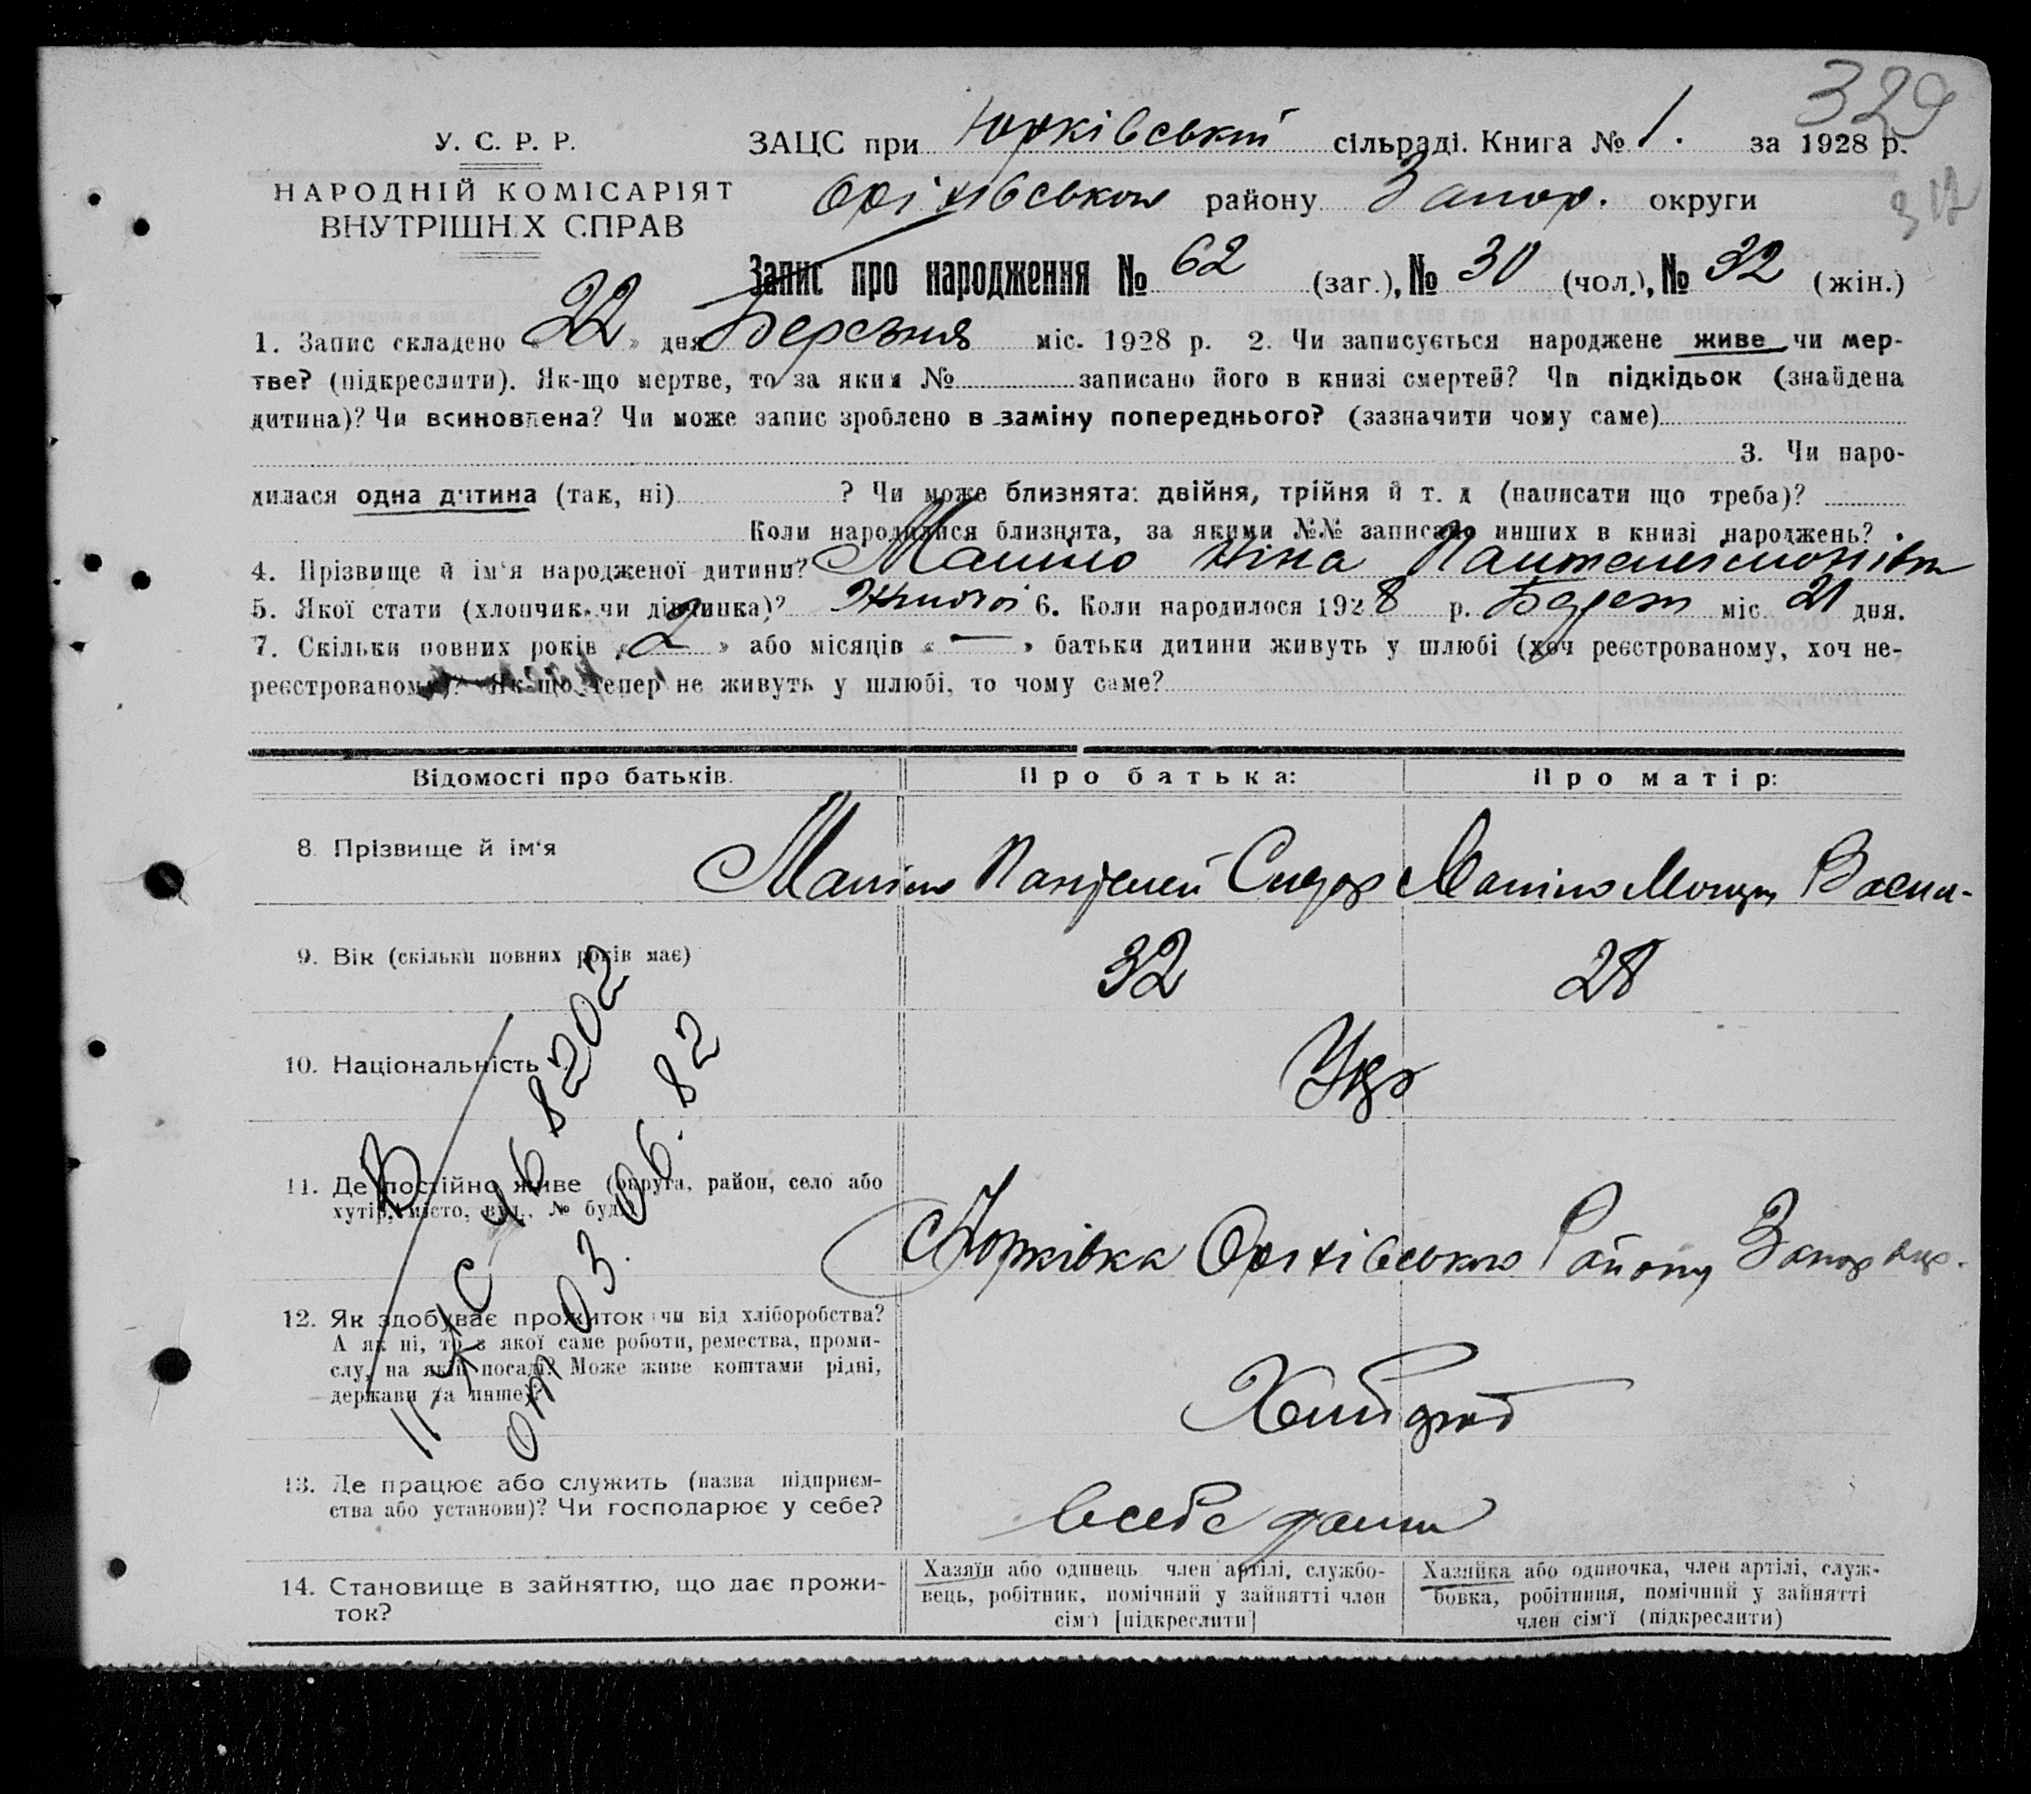 329
У. С. Р. Р.
НАРОДНІЙ КОМІСАРІЯТ
ВНУТРІШНІХ СПРАВ
ЗАЦС при Юрківській сільраді. Книга № 1. за 1928 р.
Оріхівського району Запор. округи
317
Запис про народження № 62 (заг.), № 30 (чол.), № 32 (жін.)
1. Запис складено « 22 » дня Березня міс. 1928 р. 2. Чи записується народжене живе чи мер-
тве? (підкреслити). Як-що мертве, то за яким № записано його в книзі смертей? Чи підкідьок (знайдена
дитина)? Чи всиновлена? Чи може запис зроблено в заміну попереднього? (зазначити чому саме)
3. Чи наро-
дилася одна дитина (так, ні) ? Чи може близнята: двійня, трійня й т. д (написати що треба)?
Коли народилися близнята, за якими №№ записано инших в книзі народжень?
4. Прізвище й ім‘я народженої дитини? Ніна Пантелеімонівна
5. Якої стати (хлопчик чи дівчинка)? Жіночої 6. Коли народилося 1928 р. Берез міс. 21 дня.
7. Скільки повних років « 2 » або місяців « — » батьки дитини живуть у шлюбі (хоч реєстрованому, хоч не-
реєстрованому)? Як-що тепер не живуть у шлюбі, то чому саме?
Відомості про батьків.
Про батька:
Про матір:
8. Прізвище й ім‘я
Пантелей Сидор
Васи-
9. Вік (скільки повних років має)
32
28
10. Національність
Укр
11. Де постійно живе (округа, район, село або
хутір, місто, вул., № буд.)
Юрківка Оріхівського Району Запор окр.
12. Як здобуває прожиток чи від хліборобства?
А як ні, то з якої саме роботи, ремества, проми-
слу, на якій посаді? Може живе коштами рідні,
держави та инше?
Хлібороб
13. Де працює або служить (назва підприєм-
ства або установи)? Чи господарює у себе?
в себе дома
14. Становище в зайняттю, що дає прожи-
ток?
Хазяїн або одинець член артілі, службо-
вець, робітник, помічний у зайнятті член
сім‘ї [підкреслити]
Хазяйка або одиночка, член артілі, служ-
бовка, робітниця, помічний у зайнятті
член сім‘ї (підкреслити)
03.06.82